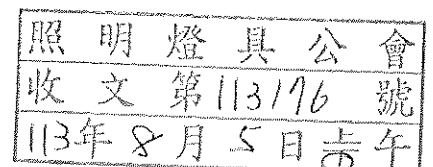 照明燈具公會
收文第113176號
113年8月5日上午